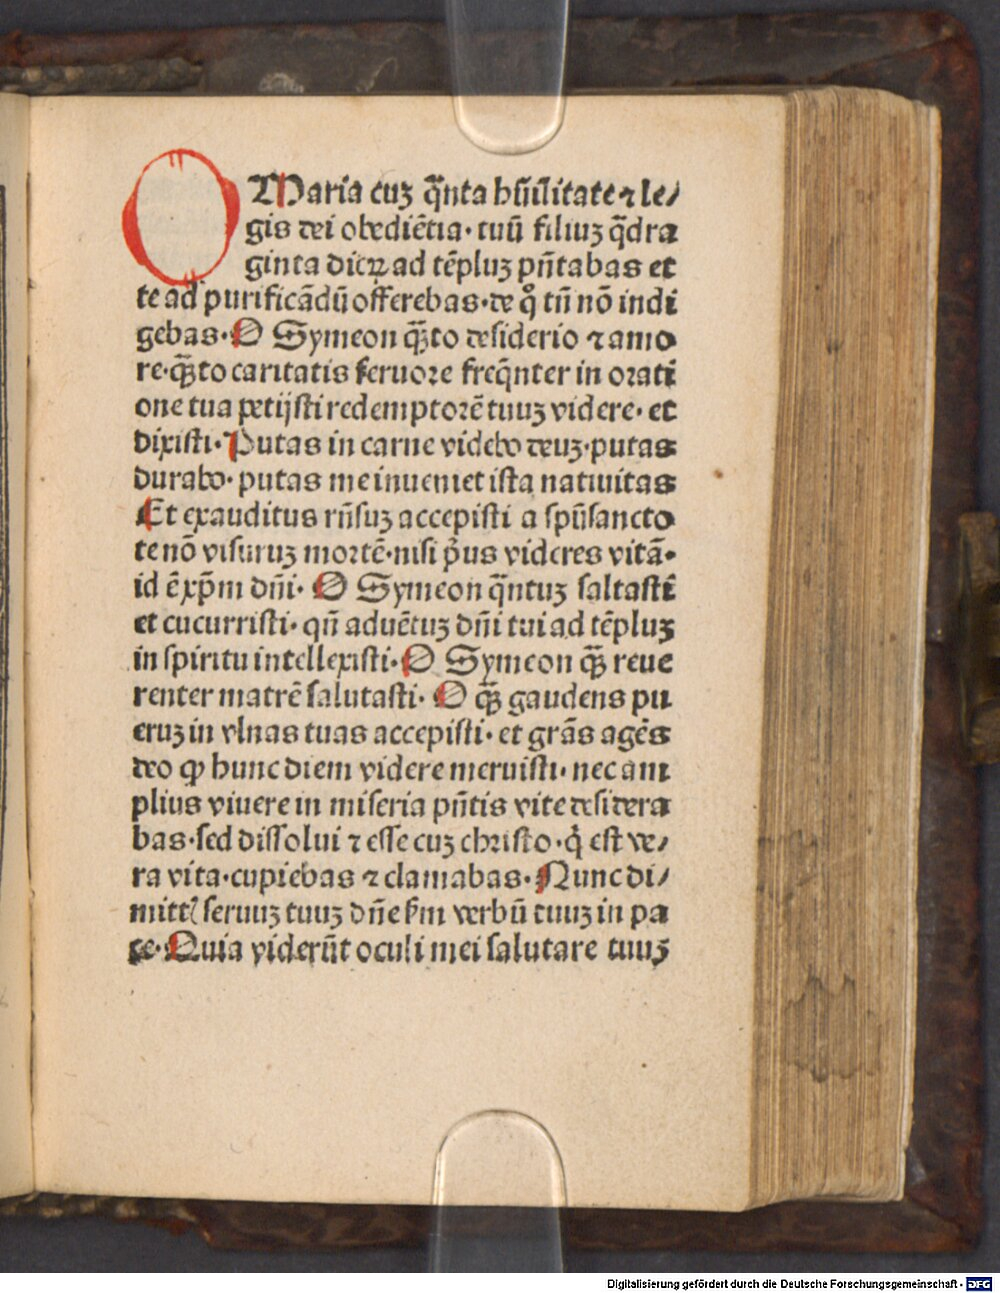 O Maria cuꝫ q̃nta hũilitate ⁊ le⸗
gis dei obediẽtia· tuũ filiuꝫ q̃dra
ginta dieꝝ ad tẽpluꝫ pñtabas et
te ad purificãdũ offerebas· de qͦ tñ nõ indi
gebas· O Symeon q̃ꝫto desiderio ⁊ amo
re· q̃ꝫto caritatis feruore freq̃nter in orati
one tua petijsti redemptorẽ tuuꝫ videre· et
dixisti· Putas in carne videbo deuꝫ· putas
durabo· putas me inueniet ista natiuitas
Et exauditus rñsuꝫ accepisti a spũsancto
te nõ visuruꝫ mortẽ· nisi pͥus videres vitã·
id ẽ xp̃m dñi· O Symeon q̃ntuꝫ saltasti
et cucurristi· qñ aduẽtuꝫ dñi tui ad tẽpluꝫ
in spiritu intellexisti· O Symeon q̃ꝫ reue
renter matrẽ salutasti· O q̃ꝫ gaudens pu
eruꝫ in vlnas tuas accepisti· et grãs agẽs
deo ꝙ hunc diem videre meruisti· nec am
plius viuere in miseria pñtis vite desidera
bas· sed dissolui ⁊ esse cuꝫ christo· qͥ est ve⸗
ra vita· cupiebas ⁊ clamabas· Nunc di⸗
mittꝭ seruuꝫ tuuꝫ dñe ẜm verbũ tuuꝫ in pa
ce· Quia viderũt oculi mei salutare tuuꝫ
Digitalisierung gefördert durch die Deutsche Forschungsgemeinschaft - DFG